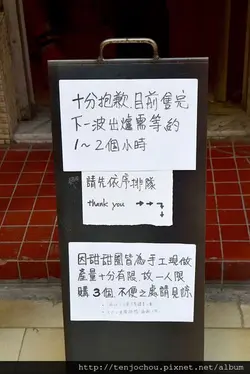 十分抱歉,目前售完
下一波出爐需等約
1~2個小時
請先依序排隊
thank you →→↓
因甜甜圈皆為手工現做
產量十分有限,故一人限
購3個,不便之處請見諒
http://tenjochou.pixnet.net/album